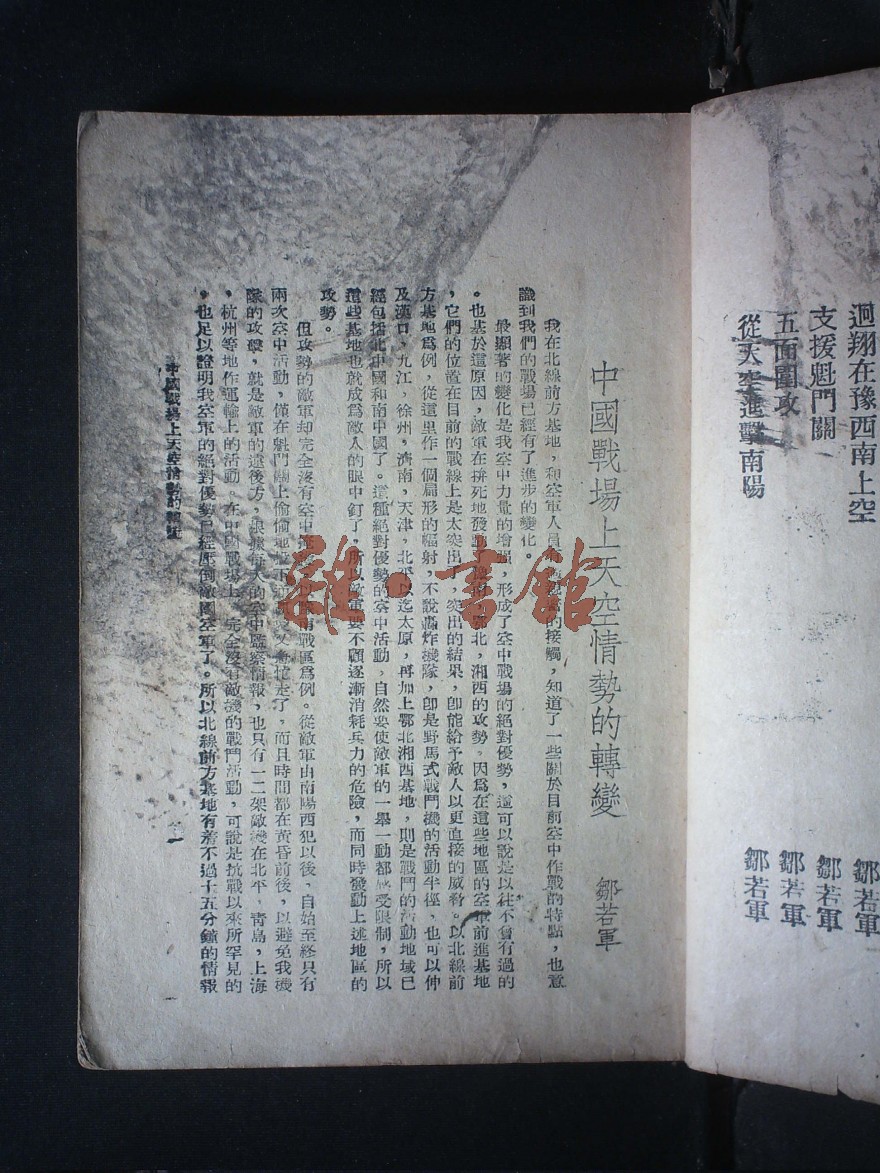 迴翔在豫西南上空 鄒若軍
支援魁門關 鄒若軍
五面圍攻 鄒若軍
從天空進擊南陽 鄒若軍
中國戰場上天空情勢的轉變
鄒若軍
我在北線前方基地，和空軍人員的接觸，知道了一些關於目前空中作戰的特點，也意
識到我們的戰場已經有了進步的變化。
最顯著的變化是我空中力量的增强，形成了空中戰場的絕對優勢，這可以說是以往不曾有過的
。也基於這原因，敵軍在拼死地發動了鄂北，湘西的攻勢。因爲在這些地區的空軍前進基地
，它們的位置在目前的戰線上是太突出了，突出的結果，卽能給予敵人以更直接的威脅。以北線前
方基地爲例，從這里作一個扁形的輻射，不說轟炸機隊，卽是野馬式戰鬥機的活動半徑，也可以伸
及漢口，九江，徐州，濟南，天津，北平以迄太原，再加上鄂北湘西基地，則是戰鬥的活動地域已
經包括北中國和南中國了。這種絕對優勢的空中活動，自然要使敵軍的一舉一動都感受限制，所以
這些基地也就成爲敵人的眼中釘了，所以敵軍要不顧逐漸消耗兵力的危險，而同時發動上述地區的
攻勢。
但攻勢的敵軍却完全沒有空中戰區爲例。從敵軍由南陽西犯以後，自始至終只有
兩次空中活動，僅在魁門關上偷偷地忙走了，而且時間都在黄昏前後，以避免我機
隊的攻擊，就是敵軍的遠後方，根據每天的空中監察情報，也只有一二架敵機在北平，青島，上海
，杭州等地作運輸上的活動。在中國戰場上，完全沒有敵機的戰鬥活動，可說是抗戰以來所罕見的
，也足以證明我空軍的絕對優勢已經壓倒敵國空軍了。所以北線前方基地有着不過十五分鐘的情報
中國戰場上天空情勢的轉變
一
雜·書館